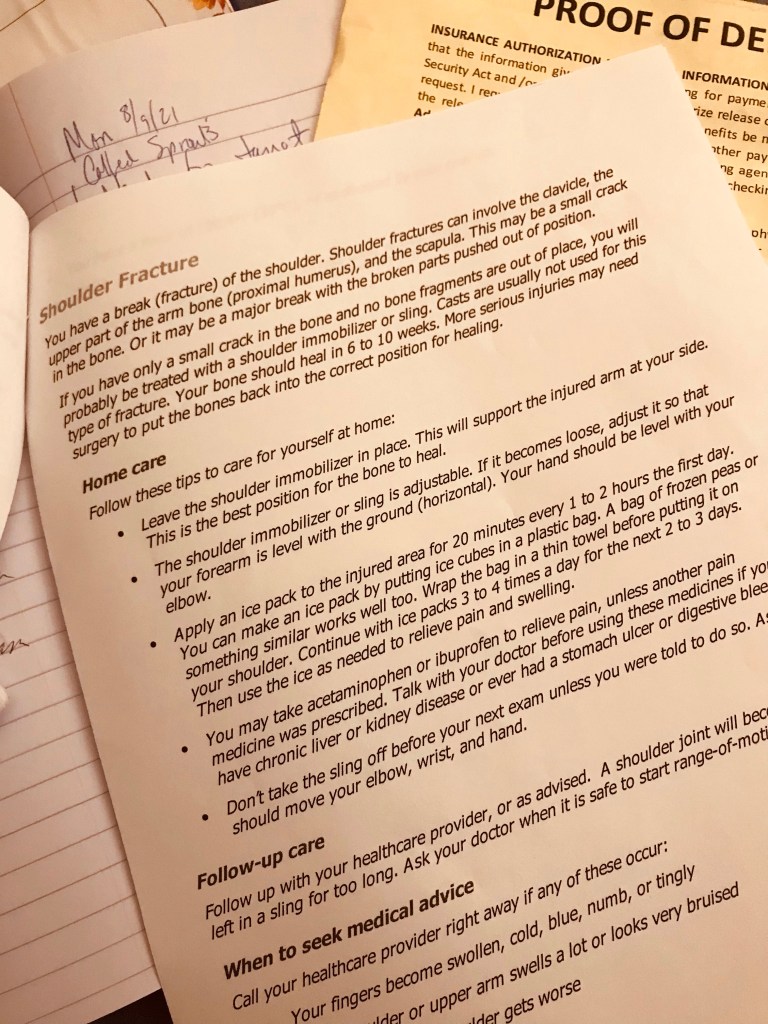 PROOF OF DE
INSURANCE AUTHORIZATION
INFORMATION
that the information giv
ng for payme
Security Act and /o
rize release o
request. I req
nefits be m
the rele
other pay
ng agen
checkin
Mon 8/9/21
Called Sprouts
Shoulder Fracture
You have a break (fracture) of the shoulder. Shoulder fractures can involve the clavicle, the
upper part of the arm bone (proximal humerus), and the scapula. This may be a small crack
in the bone. Or it may be a major break with the broken parts pushed out of position.
If you have only a small crack in the bone and no bone fragments are out of place, you will
probably be treated with a shoulder immobilizer or sling. Casts are usually not used for this
type of fracture. Your bone should heal in 6 to 10 weeks. More serious injuries may need
surgery to put the bones back into the correct position for healing.
Home care
Follow these tips to care for yourself at home:
• Leave the shoulder immobilizer in place. This will support the injured arm at your side.
This is the best position for the bone to heal.
• The shoulder immobilizer or sling is adjustable. If it becomes loose, adjust it so that
your forearm is level with the ground (horizontal). Your hand should be level with your
elbow.
• Apply an ice pack to the injured area for 20 minutes every 1 to 2 hours the first day.
You can make an ice pack by putting ice cubes in a plastic bag. A bag of frozen peas or
something similar works well too. Wrap the bag in a thin towel before putting it on
your shoulder. Continue with ice packs 3 to 4 times a day for the next 2 to 3 days.
Then use the ice as needed to relieve pain and swelling.
• You may take acetaminophen or ibuprofen to relieve pain, unless another pain
medicine was prescribed. Talk with your doctor before using these medicines if you
have chronic liver or kidney disease or ever had a stomach ulcer or digestive blee
• Don't take the sling off before your next exam unless you were told to do so. As
should move your elbow, wrist, and hand.
Follow-up care
Follow up with your healthcare provider, or as advised. A shoulder joint will bec
left in a sling for too long. Ask your doctor when it is safe to start range-of-moti
When to seek medical advice
Call your healthcare provider right away if any of these occur:
Your fingers become swollen, cold, blue, numb, or tingly
ulder or upper arm swells a lot or looks very bruised
lder gets worse